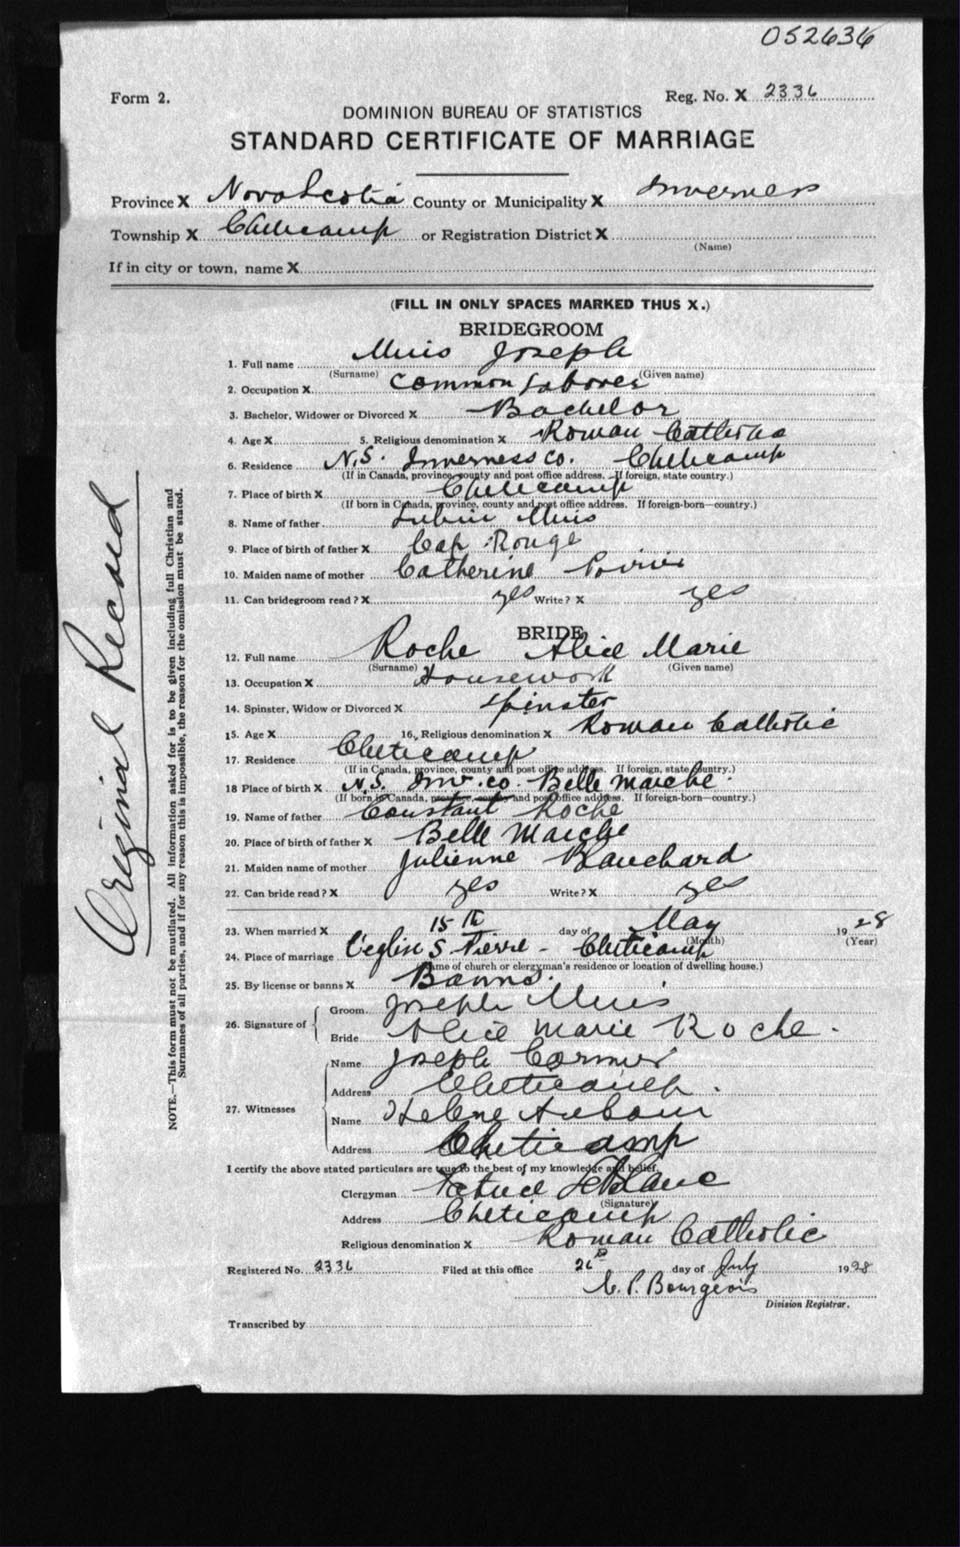 052636
Form 2. Reg. No. X 2336
DOMINION BUREAU OF STATISTICS
STANDARD CERTIFICATE OF MARRIAGE
Province X Nova Scotia County or Municipality X Inverness
Township X Cheticamp or Registration District X
(Name)
If in city or town, name X
(FILL IN ONLY SPACES MARKED THUS X.)
BRIDEGROOM
1. Full name Muis Joseph
(Surname) (Given name)
2. Occupation X Common Laborer
3. Bachelor, Widower or Divorced X Bachelor
4. Age X 5. Religious denomination X Roman Catholic
6. Residence N.S. Inverness Co. Cheticamp
(If in Canada, province, county and post office address. If foreign, state country.)
7. Place of birth X Cheticamp
(If born in Canada, province, county and post office address. If foreign-born—country.)
8. Name of father Lubin Muis
9. Place of birth of father X Cap Rouge
10. Maiden name of mother Catherine Poirier
11. Can bridegroom read? X yes Write? X yes
BRIDE
12. Full name Roche Alice Marie
(Surname) (Given name)
13. Occupation X Housework
14. Spinster, Widow or Divorced X Spinster
15. Age X 16. Religious denomination X Roman Catholic
17. Residence Cheticamp
(If in Canada, province, county and post office address. If foreign, state country.)
18 Place of birth X N.S. Inv. Co. Belle Marche.
(If born in Canada, province, county and post office address. If foreign-born—country.)
19. Name of father Constant Roche
20. Place of birth of father X Belle Marche
21. Maiden name of mother Julienne Blanchard
22. Can bride read? X yes Write? X yes
23. When married X 15th day of May 1928
(Month) (Year)
24. Place of marriage L'eglise S Pierre - Cheticamp
(Name of church or clergyman's residence or location of dwelling house.)
25. By license or banns X Banns.
26. Signature of
Groom Joseph Muis
Bride Alice Marie Roche.
27. Witnesses
Name Joseph Cormier
Address Cheticamp.
Name Helene Aucoin
Address Cheticamp
I certify the above stated particulars are true to the best of my knowledge and belief.
Clergyman LeBlanc
(Signature)
Address Cheticamp
Religious denomination X Roman Catholic
Registered No. 2336 Filed at this office 26 day of July 1928
C. P. Bourgeois
Division Registrar.
Transcribed by
Original Record
NOTE.—This form must not be mutilated. All information asked for is to be given including full Christian and
Surnames of all parties, and if for any reason this is impossible, the reason for the omission must be stated.